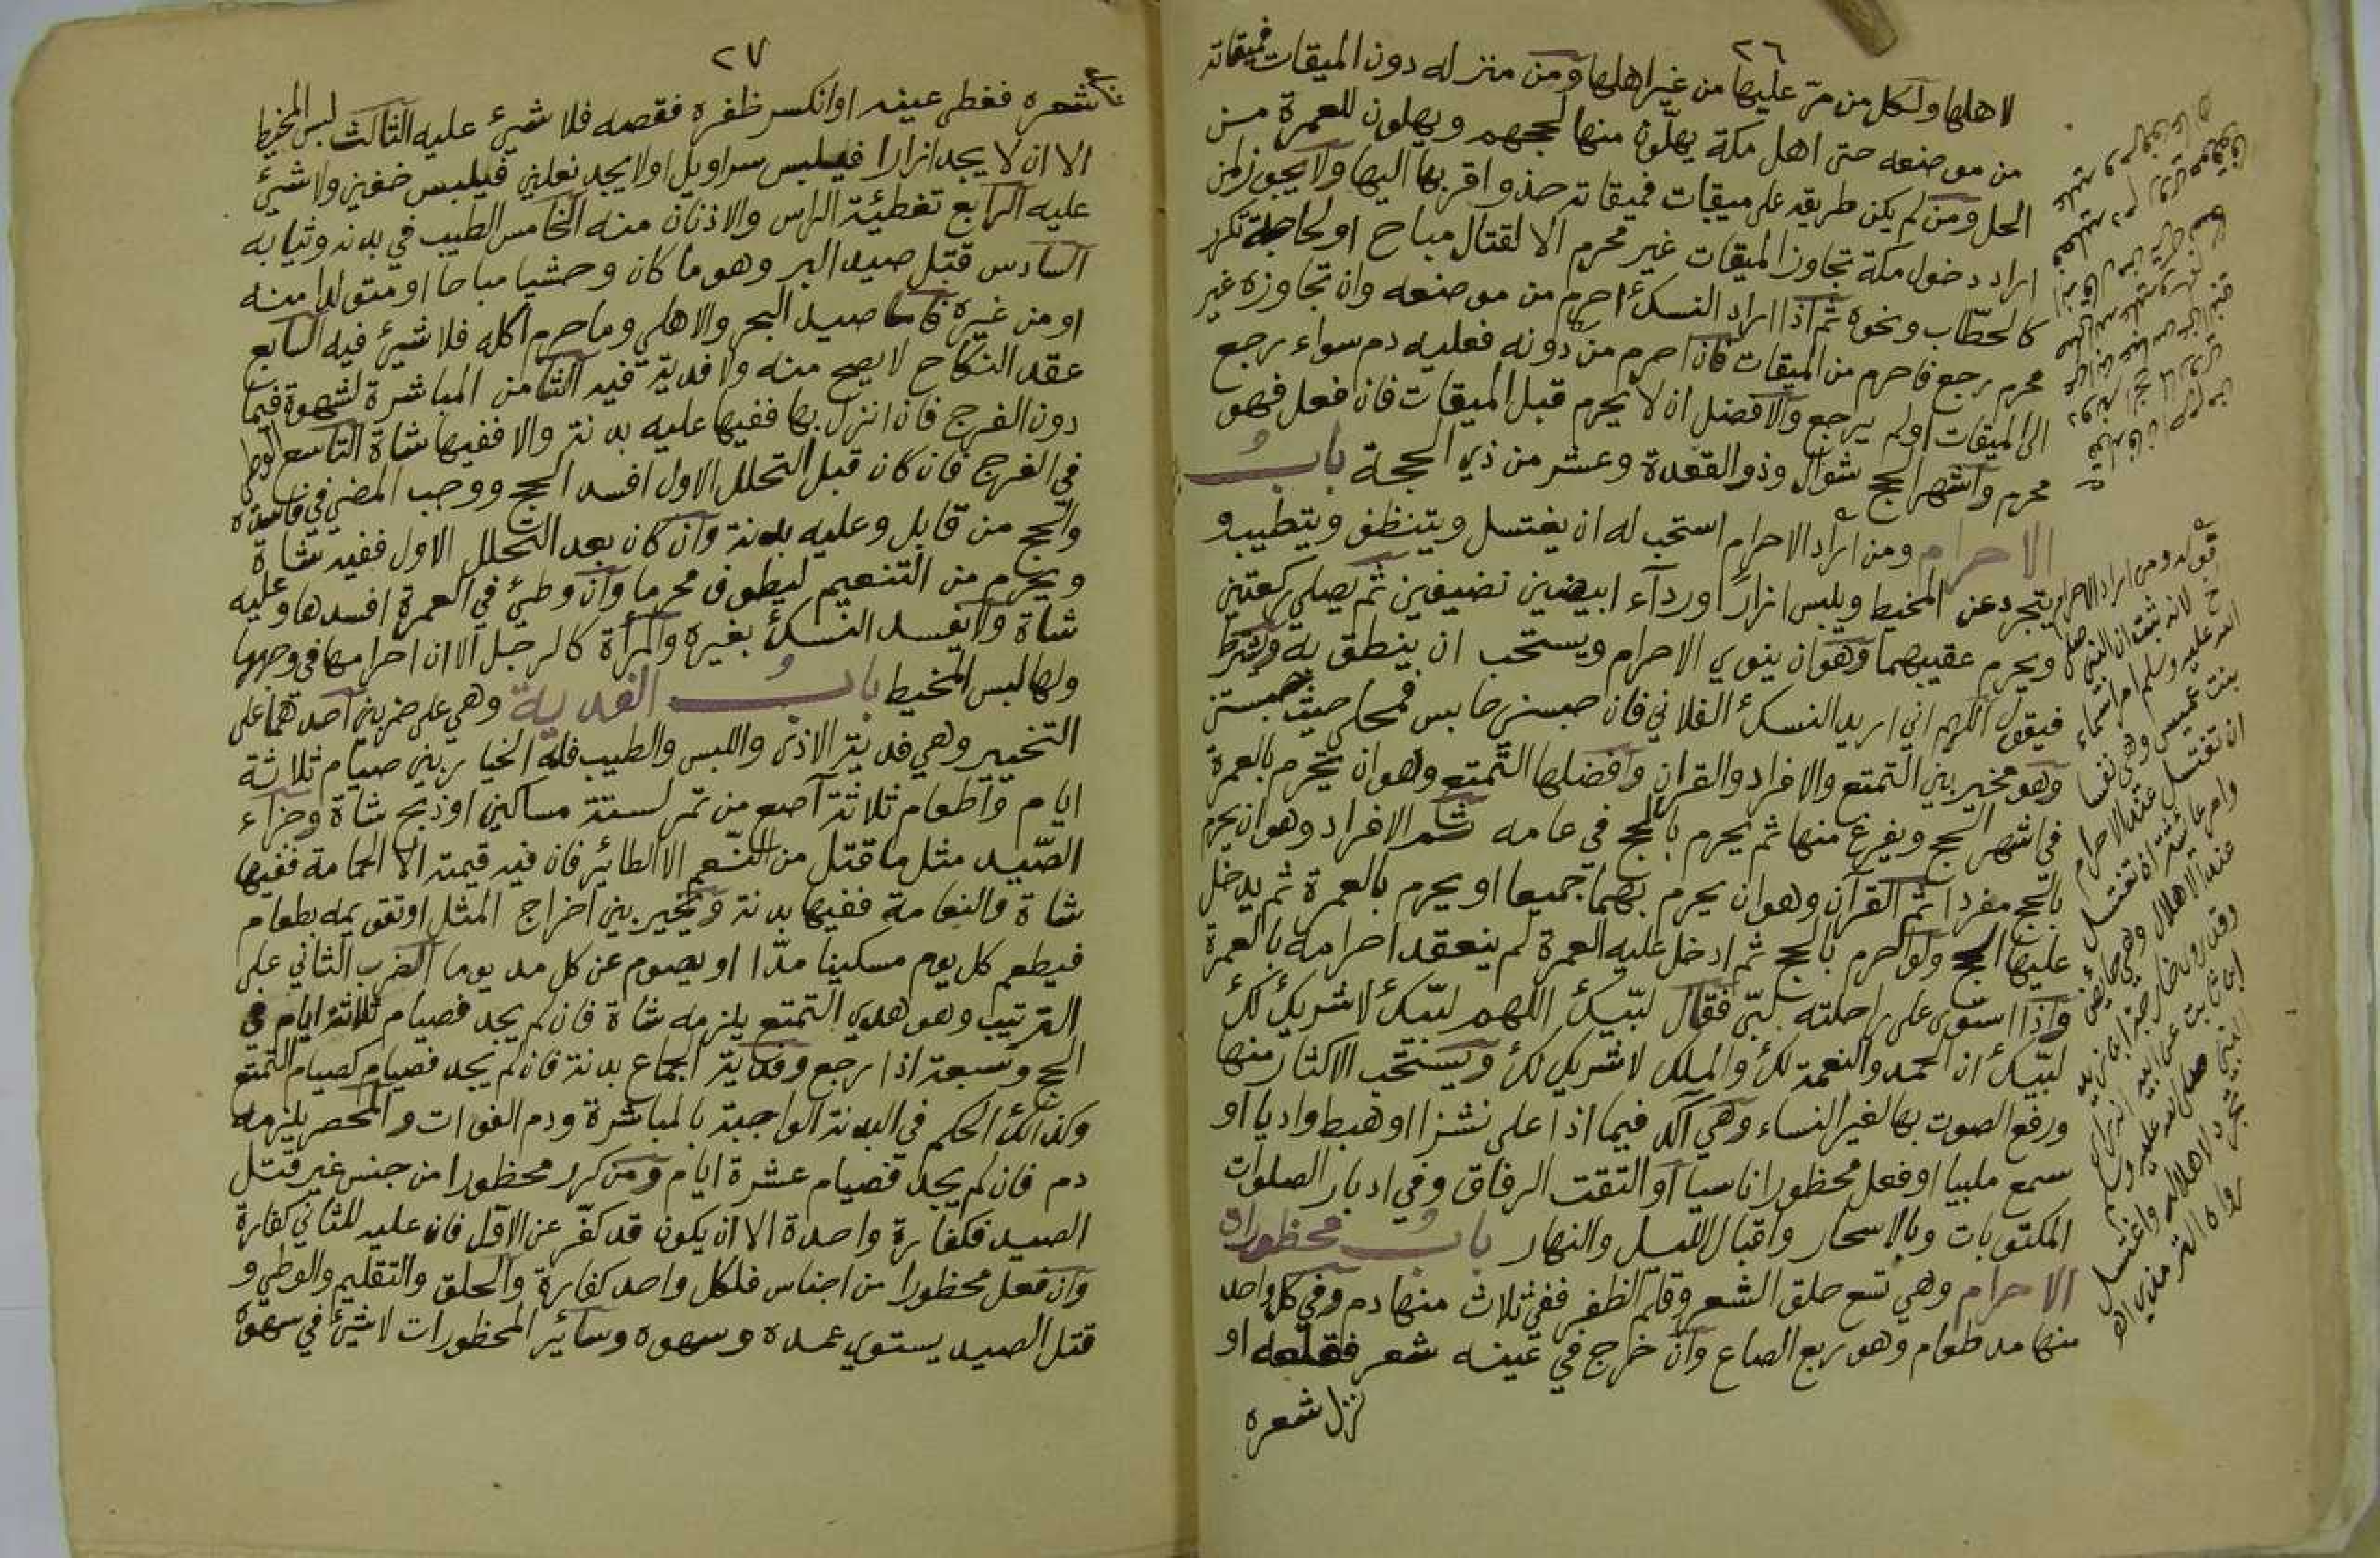 ٢٦
لاهلها ولكل من مرّ عليها من غير اهلها ومن منزله دون الميقات فميقاته
من موضعه حتى اهل مكة يهلّون منها لحجهم ويهلون للعمرة من
الحل ومن لم يكن طريقه على ميقات فميقاته حذو اقربها اليها ولا يجوز لمن
اراد دخول مكة تجاوز الميقات غير محرم الا لقتال مباح او لحاجة تكرر
كالحطّاب ونحوه ثم اذا اراد النسك احرم من موضعه وان تجاوزه غير
محرم رجع فاحرم من الميقات فان احرم من دونه فعليه دم سواء رجع
الى الميقات او لم يرجع والافضل ان لا يحرم قبل الميقات فان فعل فهو
محرم واشهر الحج شوال وذو القعدة وعشر من ذي الحجة باب
الاحرام ومن اراد الاحرام استحب له ان يغتسل ويتنظف ويتطيب و
يتجرد عن المخيط ويلبس ازارا ورداء ابيضين نضيفين ثم يصلي ركعتين
ويحرم عقيبهما وهو ان ينوي الاحرام ويستحب ان ينطق به ويشترط
فيقول اللهم اني اريد النسك الفلاني فان حبسني حابس فمحلي حيث حبستني
وهو مخير بين التمتع والافراد والقران وافضلها التمتع وهو ان يحرم بالعمرة
في اشهر الحج ويفرغ منها ثم يحرم بالحج في عامه ثم الافراد وهو ان يحرم
بالحج مفردا ثم القرآن وهو ان يحرم بهما جميعا او يحرم بالعمرة ثم يدخل
عليها الحج ولو احرم بالحج ثم ادخل عليه العمرة لم ينعقد احرامه بالعمرة
واذا استوى على راحلته لبّى فقال لبّيك اللهم لبّيك لا شريك لك
لبّيك ان الحمد والنعمة لك والملك لا شريك لك ويستحب الاكثار منها
ورفع الصوت بها لغير النساء وهي آكد فيما اذا على نشزا او هبط واديا او
سمع ملبيا او فعل محظورا ناسيا او التقت الرفاق وفي ادبار الصلوات
المكتوبات وبالاسحار واقبال الليل والنهار باب محظورات
الاحرام وهي تسع حلق الشعر وقلم الظفر ففي ثلاث منها دم وفي كل واحد
منها مد طعام وهو ربع الصاع وان خرج في عينه شعر فقلعه او
نزل شعره
قوله ومن اراد الاحرام
الخ لانه ثبت ان النبي صلى
الله عليه وسلم امر اسماء
بنت عميس وهي نفسا
ان تغتسل عند الاحرام
وامر عائشة ان تغتسل
عند الاهلال وهي حائض
وقد روى خارجة ابن زيد
ابن ثابت عن ابيه انه راى
النبي صلى الله عليه وسلم
تجرد لاهلاله واغتسل
رواه الترمذي اه
٢٧
شعره فغطى عينه او انكسر ظفره فقصه فلا شيء عليه الثالث لبس المخيط
الا ان لا يجد ازارا فيلبس سراويل او لا يجد نعلين فيلبس خفين ولا شيء
عليه الرابع تغطئية الراس والاذنان منه الخامس الطيب في بدنه وثيابه
السادس قتل صيد البر وهو ما كان وحشيا مباحا او متولدا منه
او من غيره فاما صيد البحر والاهلي وما حرم اكله فلا شيء فيه السابع
عقد النكاح لا يصح منه ولا فدية فيه الثامن المباشرة لشهوة فيما
دون الفرج فان انزل بها ففيها عليه بدنة والا ففيها شاة التاسع الوطي
في الفرج فان كان قبل التحلل الاول افسد الحج ووجب المضي في فاسده
والحج من قابل وعليه بدنة وان كان بعد التحلل الاول ففيه شاة
ويحرم من التنعيم ليطوف محرما وان وطئ في العمرة افسدها وعليه
شاة ولا يفسد النسك بغيره والمرأة كالرجل الا ان احرامها في وجهها
ولها لبس المخيط باب الفدية وهي على ضربين احدهما على
التخيير وهي فدية الاذى واللبس والطيب فله الخيار بين صيام ثلاثة
ايام واطعام ثلاثة آصع من تمر لستة مساكين او ذبح شاة وجزاء
الصّيد مثل ما قتل من النّعم الا الطائر فان فيه قيمته الا الحمامة ففيها
شاة والنعامة ففيها بدنة ويخير بين اخراج المثل او تقويمه بطعام
فيطعم كل يوم مسكينا مدّا او يصوم عن كل مد يوما الضرب الثاني على
الترتيب وهو هدي التمتع يلزمه شاة فان لم يجد فصيام ثلاثة ايام في
الحج وسبعة اذا رجع وفدية الجماع بدنة فان لم يجد فصيام كصيام التمتع
وكذالك الحكم في البدنة الواجبة بالمباشرة ودم الفوات والمحصر يلزمه
دم فان لم يجد فصيام عشرة ايام ومن كرر محظورا من جنس غير قتل
الصيد فكفارة واحدة الا ان يكون قد كفّر عن الاول فان عليه للثاني كفارة
وان فعل محظورا من اجناس فلكل واحد كفارة والحلق والتقليم والوطي و
قتل الصيد يستوي عمده وسهوه وسائر المحظورات لا شيء في سهوه